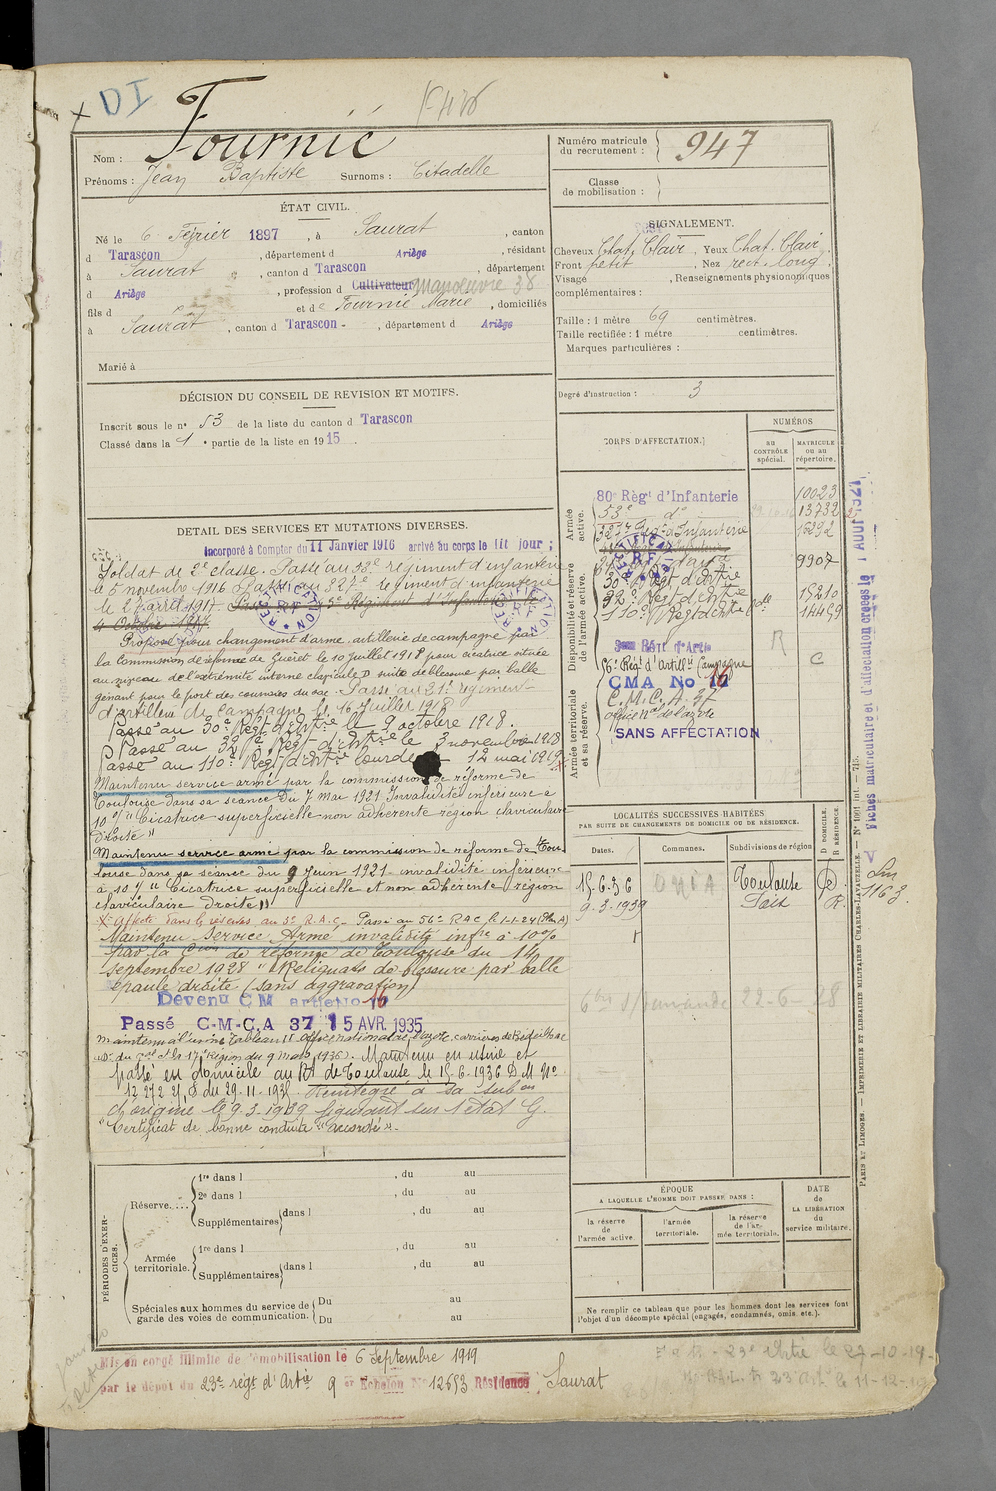 DI
Nom : Fournié
Prénoms : Jean Baptiste Surnoms : Citadelle
Numéro matricule du recrutement : 947
Classe de mobilisation :
ÉTAT CIVIL.
Né le 6 Février 1897, à Saurat, canton
d Tarascon, département d Ariège, résidant
à Saurat, canton d Tarascon, département
d Ariège, profession d Cultivateur Manoeuvre 38
fils d et de Fournié Marie, domiciliés
à Saurat, canton d Tarascon -, département d Ariège
Marié à
SIGNALEMENT.
Cheveux Chat. Clair, Yeux Chat. Clair,
Front petit, Nez rect. long,
Visage , Renseignements physionomiques
complémentaires :
Taille : 1 mètre 69 centimètres.
Taille rectifiée : 1 mètre centimètres.
Marques particulières :
Degré d'instruction : 3
DÉCISION DU CONSEIL DE REVISION ET MOTIFS.
Inscrit sous le n° 53 de la liste du canton d Tarascon
Classé dans la 1e partie de la liste en 1915.
DETAIL DES SERVICES ET MUTATIONS DIVERSES.
Incorporé à Compter du 11 Janvier 1916 arrivé au corps le dit jour ;
Soldat de 2e classe. Passé au 53e régiment d'infanterie
le 5 novembre 1916. Passé au 327e régiment d'infanterie
le 27 avril 1917.
4 Octobre 1917
RECTIFICATION R.F.
RECTIFICATION
Proposé pour changement d'arme, artillerie de campagne par
la Commission de réforme de Guéret le 10 juillet 1918 pour cicatrice située
au niveau de l'extrémité interne clavicule D suite de blessure par balle
gênant pour le port des courroies du sac. Passé au 31e régiment
d'artillerie de campagne le 16 juillet 1918
Passé au 30e Régt d'Artie le 9 octobre 1918.
Passé au 32e Régt d'Artie le 3 novembre 1918
Passé au 110e Régt d'Artie lourde le 12 mai 1919
Maintenu service armé par la commission de réforme de
Toulouse dans sa séance du 7 Mai 1921 Invalidité inférieure à
10% "Cicatrice superficielle non adhérente région claviculaire
droite"
Maintenu service armé par la commission de réforme de Tou-
louse dans sa séance du 9 Juin 1921 invalidité inférieure
à 10% "Cicatrice superficielle et non adhérente région
claviculaire droite"
Affecté dans la réserve au 3e R.A.C. Passé au 56e RAC le 1-1-24 (Plan A)
Maintenu Service Armé invalidité infre à 10%
par la Cion de réforme de Toulouse du 14
septembre 1928 "Reliquats de blessure par balle
épaule droite (sans aggravation)
Devenu CM artie No 16
Passé C-M-C.A 37 15 AVR. 1935
Maintenu en usine et
Passé en domicile au Rt de Toulouse le 15-6-1936 D.M. No
Réintégré à sa subon
d'origine le 9-3-1939 figurant sur l'état G.
"Certificat de bonne conduite "Accordé".
CORPS D'AFFECTATION.
NUMÉROS
au CONTRÔLE spécial.
MATRICULE ou au répertoire.
Armée active.
80e Régt d'Infanterie 10023
53e do 13732
327e Régt d'Infanterie 15292
RECTIFICATION R.F.
Disponibilité et réserve de l'armée active.
9907
30e Régt d'Artie
32e Régt d'Artie 15210
110e Régt d'Artie 14459
R C
56e Régt d'Artill. Campagne
CMA No 16
C.M.C.A 37
office nal de l'azote
SANS AFFECTATION
Armée territoriale et sa réserve.
LOCALITÉS SUCCESSIVES HABITÉES
PAR SUITE DE CHANGEMENTS DE DOMICILE OU DE RÉSIDENCE.
Dates. Communes. Subdivisions de région D DOMICILE. R RÉSIDENCE.
15-6-36 Toulouse D.
9-3-1939 Foix R.
22-6-38
1163.
Fiches matriculaire et d'affectation créées le 1 AOUT 1927
PARIS ET LIMOGES. — IMPRIMERIE ET LIBRAIRIE MILITAIRES CHARLES-LAVAUZELLE. — N° 1001 int. — 715.
PÉRIODES D'EXERCICES.
Réserve.... 1re dans l , du au
2e dans l , du au
Supplémentaires dans l , du au
Armée territoriale. 1re dans l , du au
Supplémentaires dans l , du au
Spéciales aux hommes du service de garde des voies de communication. Du au
Du au
ÉPOQUE
A LAQUELLE L'HOMME DOIT PASSER DANS :
la réserve de l'armée active. l'armée territoriale. la réserve de l'armée territoriale.
DATE de LA LIBÉRATION du service militaire.
Ne remplir ce tableau que pour les hommes dont les services font l'objet d'un décompte spécial (engagés, condamnés, omis, etc.).
Mis en congé illimité de démobilisation le 6 Septembre 1919
par le dépôt du 23e régt d'Artie 9 er Echelon No 12693 Résidence Saurat